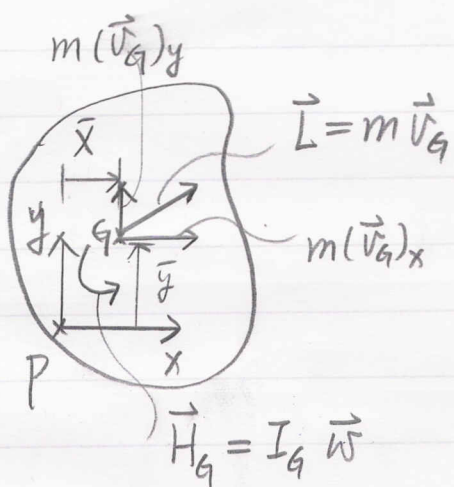 m(v⃗_G)y
x̄
L⃗ = m v⃗_G
y
G
m(v⃗_G)x
ȳ
x
P
H⃗_G = I_G ω⃗